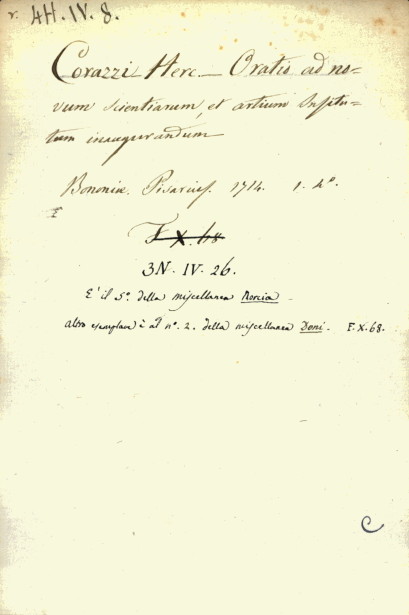 v. 4H. IV. 8.
Corazzi Herc — Oratio ad no=
vum scientiarum, et artium Institu=
tum inaugurandum
Bononiæ. Pisarius. 1714. 1. 4°.
F. X. 68
3N. IV. 26.
E' il 5° della miscellanea Norcia.
altro esemplare è al n°. 2. della miscellanea Doni. F. X. 68.
C